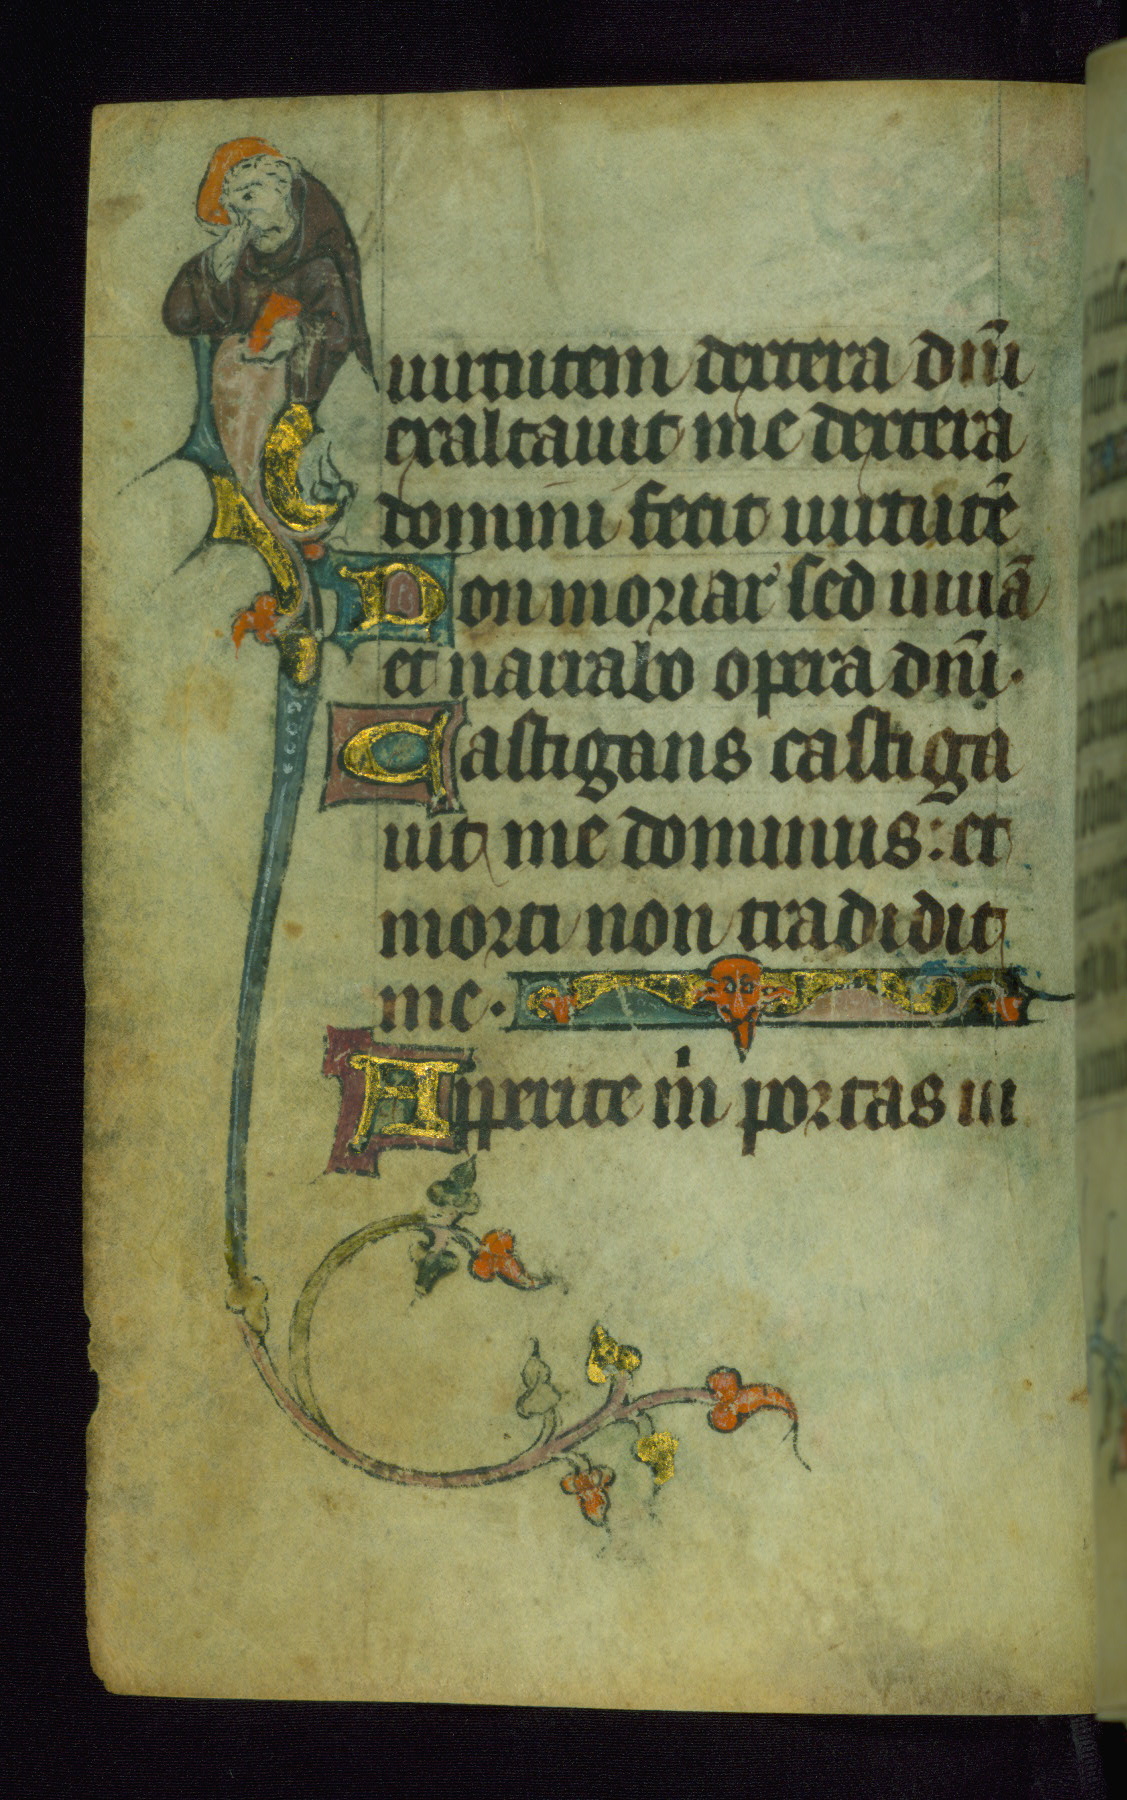 uirtutem dextera dñi
exaltauit me dextera
domini fecit uirtutē
Non moriar sed uiuā
et narrabo opera dñi.
Castigans castiga
uit me dominus: et
morti non tradidit
me.
Apperite m̍ portas iu